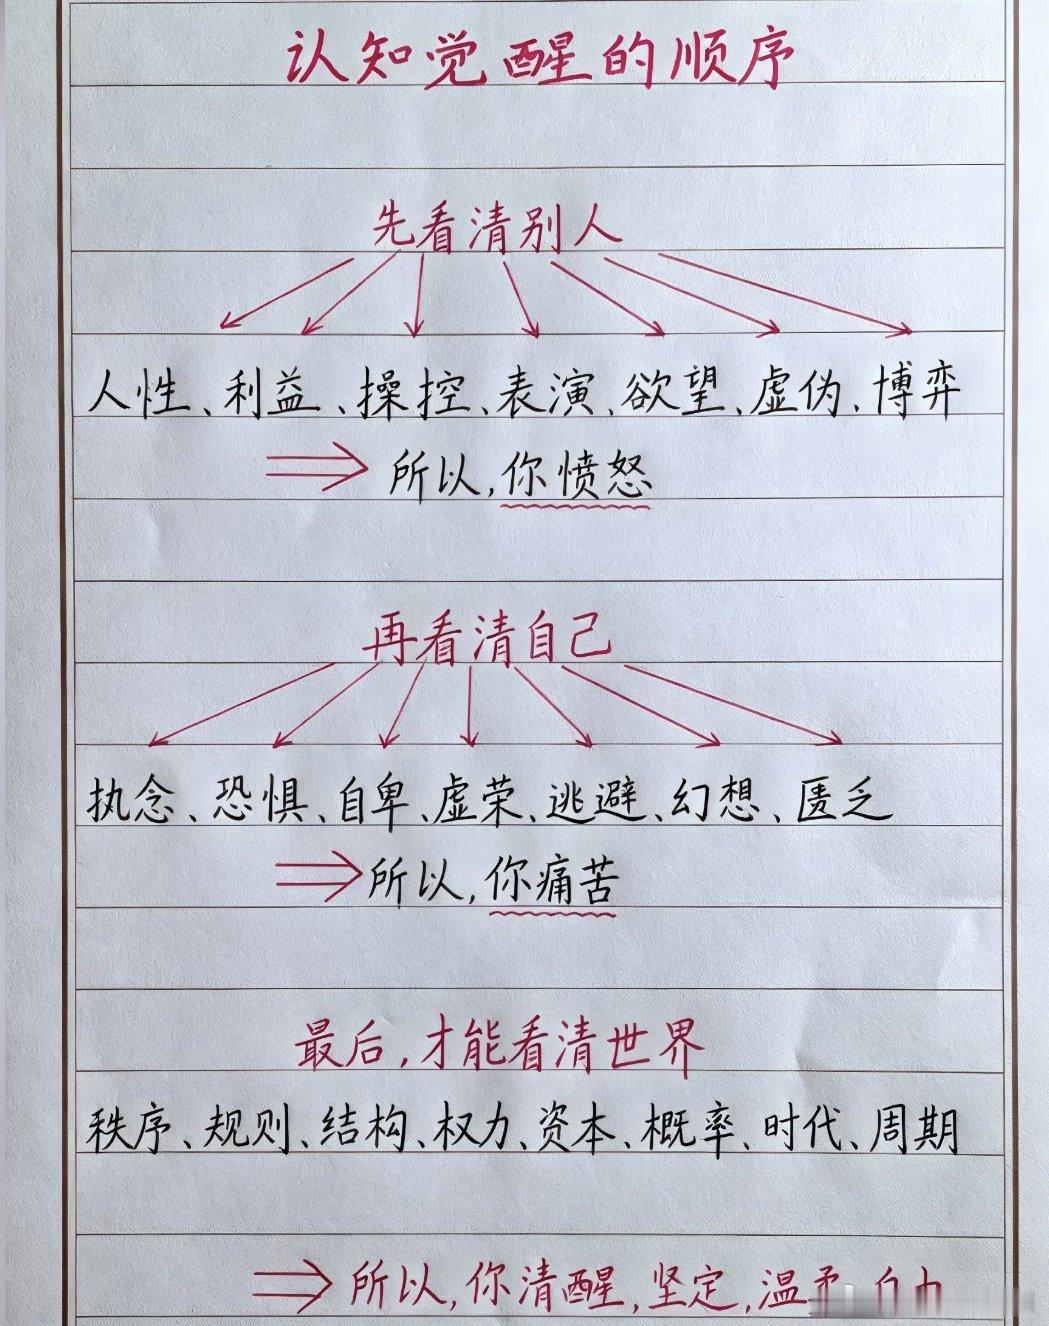 认知觉醒的顺序
先看清别人
人性、利益、操控、表演、欲望、虚伪、博弈
所以,你愤怒
再看清自己
执念、恐惧、自卑、虚荣、逃避、幻想、匮乏
所以,你痛苦
最后,才能看清世界
秩序、规则、结构、权力、资本、概率、时代、周期
所以,你清醒,坚定,温柔